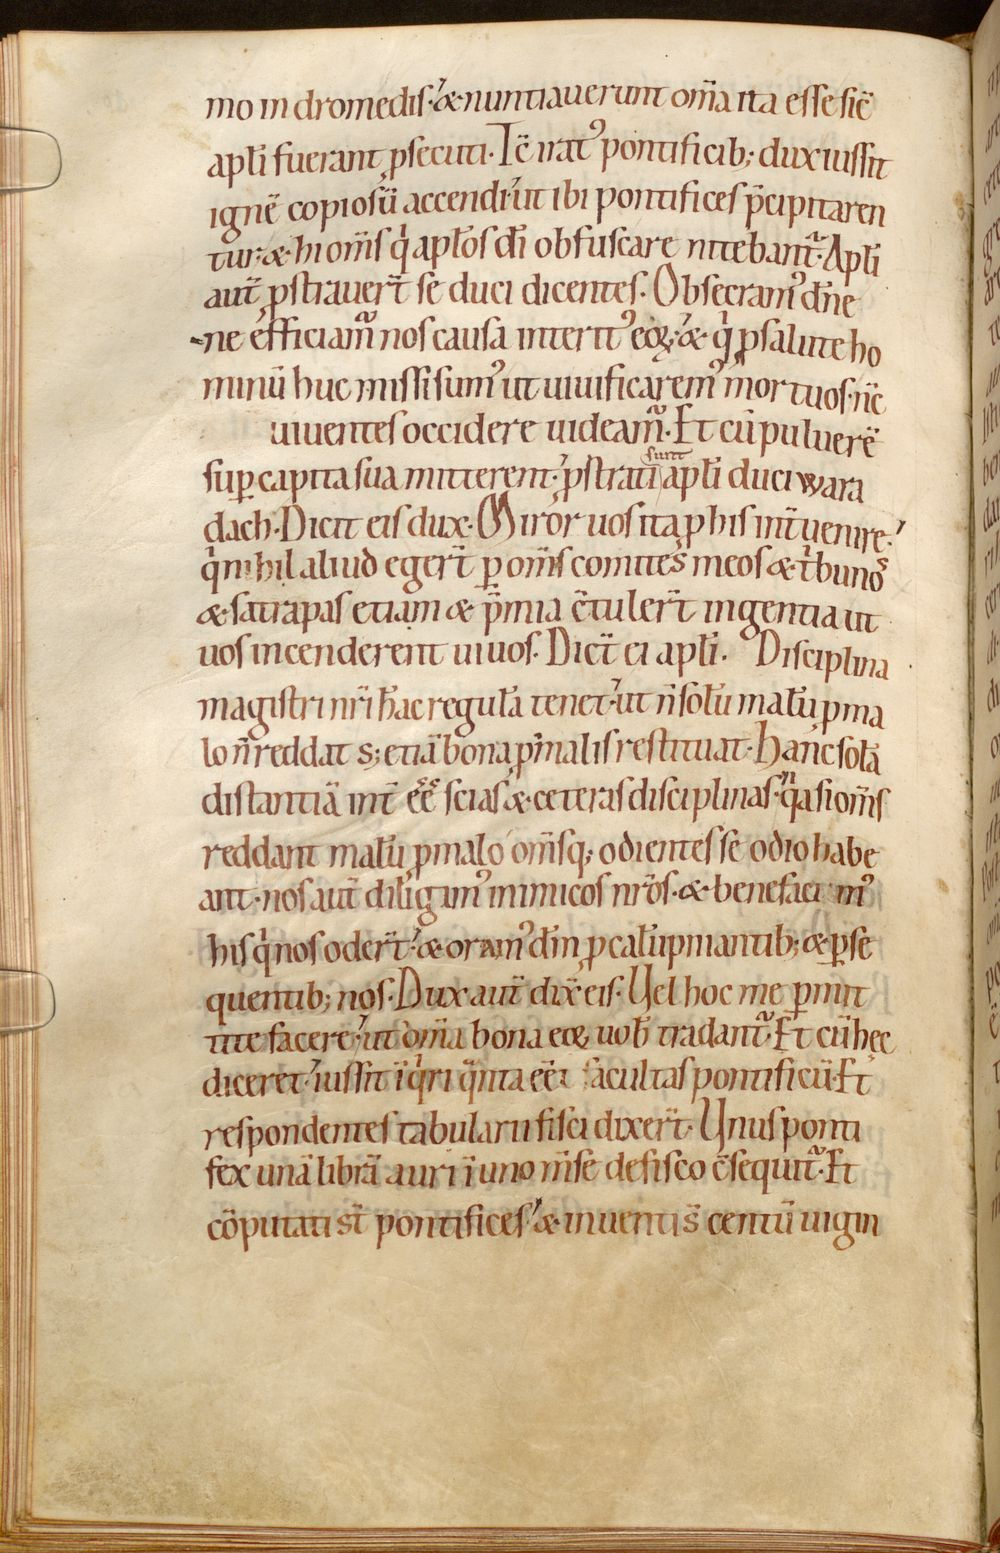 mo in dromedis·᾽& nuntiauerunt om̄a ita esse sic̄
apłi fuerant ꝑsecuti· Tc̄ irat᾽ pontificib; dux iussit
ignē copiosū accendi᾽ut ibi pontifices p̄cipitaren
tur·& hi om̄s q̇ apłos dī obfuscare nitebant᷑· Apłi
aut̄ ꝓstrauer̄t se duci dicentes· Obsecram᾽ dn̄e
ne efficiam᷑ nos causa interit᾽ eoꝝ·᾽& q̇ ꝓ salute ho
minū huc missi sum᾽ ut uiuificarem᾽ mortuos·nc̄
uiuentes occidere uideam᷑· Et cū puluerē
suꝑ capita sua mitterent·᾽ ꝓstrati sunt apłi duci wara
dach· Dicit eis dux· Miror uos ita ꝓ his int̄uenire·᾽
q̇ nihil aliud eger̄t ꝑ om̄s comites meos & t̄bunos
& satrapas etiam & p̄mia c̄tuler̄t ingentia ut
uos incenderent uiuos· Dict̄ ei apłi· Disciplina
magistri nr̄i hāc reguła tenet·᾽ut n̄ sołu mału ꝓ ma
lo n̄ reddat s; etiā bona ꝓ malis restituat· Hanc sołā
distantiā int̄ ēē scias & ceteras disciplinas·᾽ quasi om̄s
reddant mału ꝓ malo om̄sq; odientes se odio habe
ant·nos aut̄ diligim᾽ inimicos nr̄os·& benefacim᾽
his q̇ nos oder̄t·᾽& oram᾽ dn̄m ꝓ całūpniantib; & ꝑse
quentib; nos· Dux aut̄ dix̄ eis· Vel hoc me ꝑmit
tite facere·᾽ut om̄a bona eoꝝ uob̄ tradant᷑· Et cū hęc
diceret·᾽iussit īq̇ri q̄nta eēt facultas pontificū· Et
respondentes tabularii fisci dixer̄t· Vnus ponti
fex unā librā auri ī uno m̄se de fisco c̄sequit᷑· Et
cōputati st̄ pontifices·᾽& inuenti s̄ centū uigin